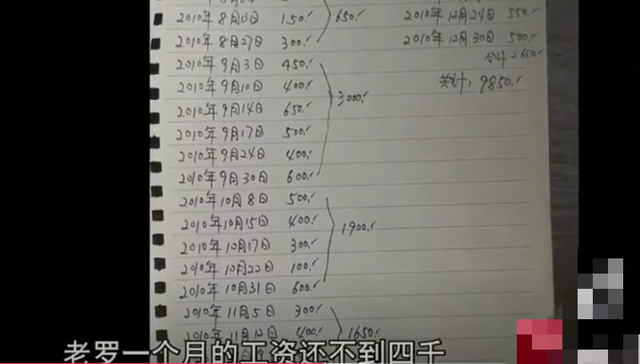 2010年8月13日 150.-
650.-
2010年8月27日 300.-
2010年9月3日 450.-
2010年9月10日 400.-
2010年9月14日 650.-
3000.-
2010年9月17日 500.-
2010年9月24日 400.-
2010年9月30日 600.-
2010年10月8日 500.-
2010年10月15日 400.-
1900.-
2010年10月17日 300.-
2010年10月22日 100.-
2010年10月31日 600.-
2010年11月5日 300.-
2010年11月12日 400.-
1650.-
2010年12月24日 550.-
2010年12月30日 500.-
合计2650.-
共计:9850.-
老罗一个月的工资还不到四千